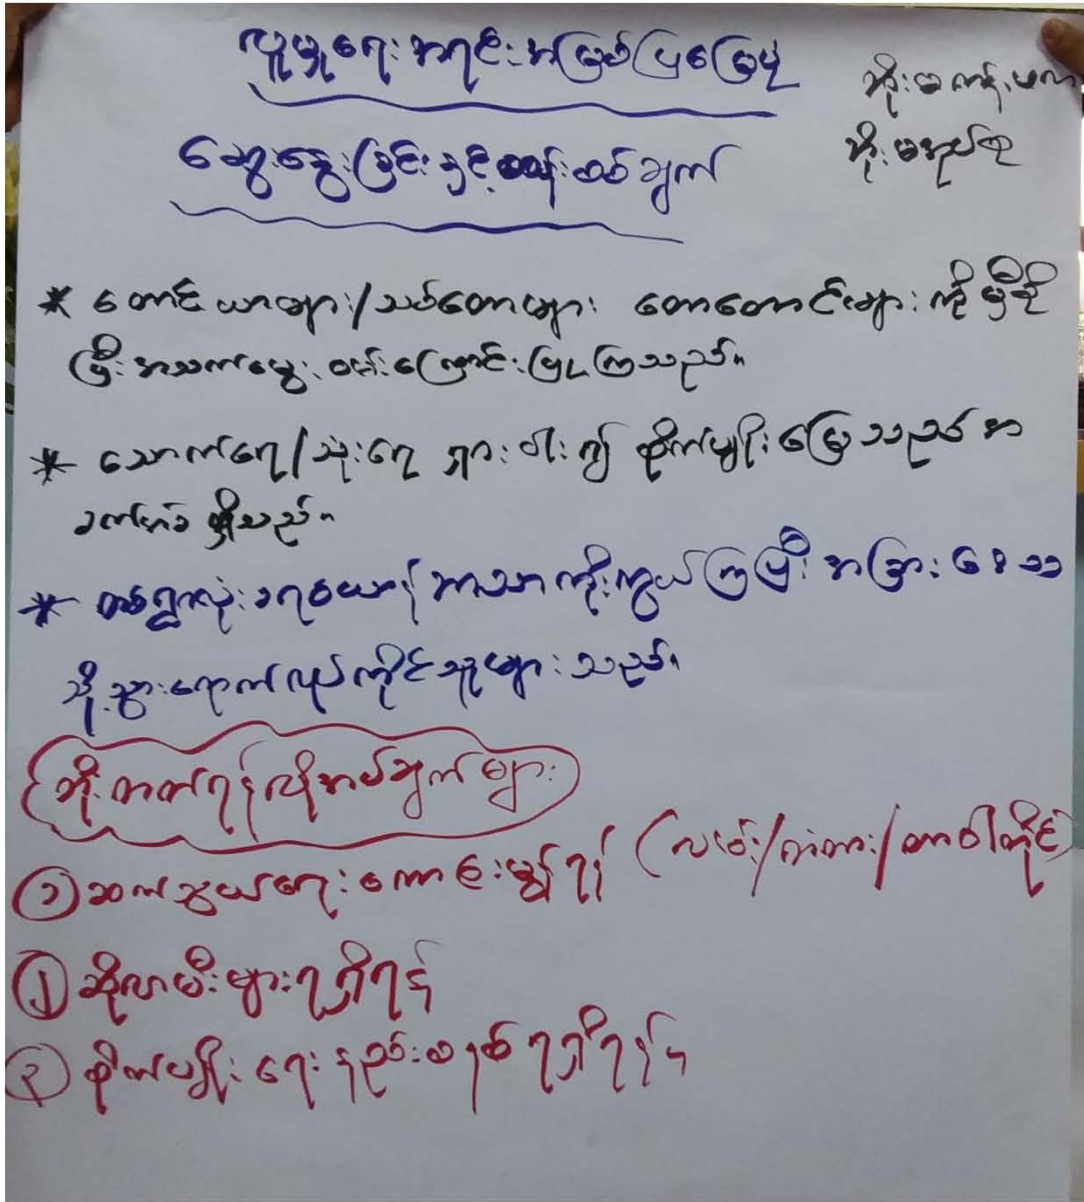 လူမှုရေးအရင်းအမြစ်ပြမြေပုံ
ဆွေးနွေးခြင်းနှင့်စပ်းစစ်ချက်
* တောင်ယာများ/သစ်တောများ တောတောင်များကိုမှီခို
ပြီးအသက်မွေးဝမ်းကြောင်းပြုကြသည်။
* သောက်ရေ/သုံးရေ ရှားပါး၍ စိုက်ပျိုးမြေသည် အ
ခက်အခဲရှိသည်။
* တစ်ရွာလုံးခရစ်ယာန်ဘာသာကိုးကွယ်ကြပြီး အခြားဒေသ
သို့သွားရောက်လုပ်ကိုင်သူများသည်။
ဖွံ့ဖြိုးတက်ရန်လိုအပ်ချက်များ
၁ ဆက်သွယ်ရေးကောင်းမွန်ရန် (လမ်း/တံတား/တာဝါတိုင်)
၂ ဆိုလာမီးများရရှိရန်
၃ စိုက်ပျိုးရေးနည်းစနစ်ရရှိရန်။